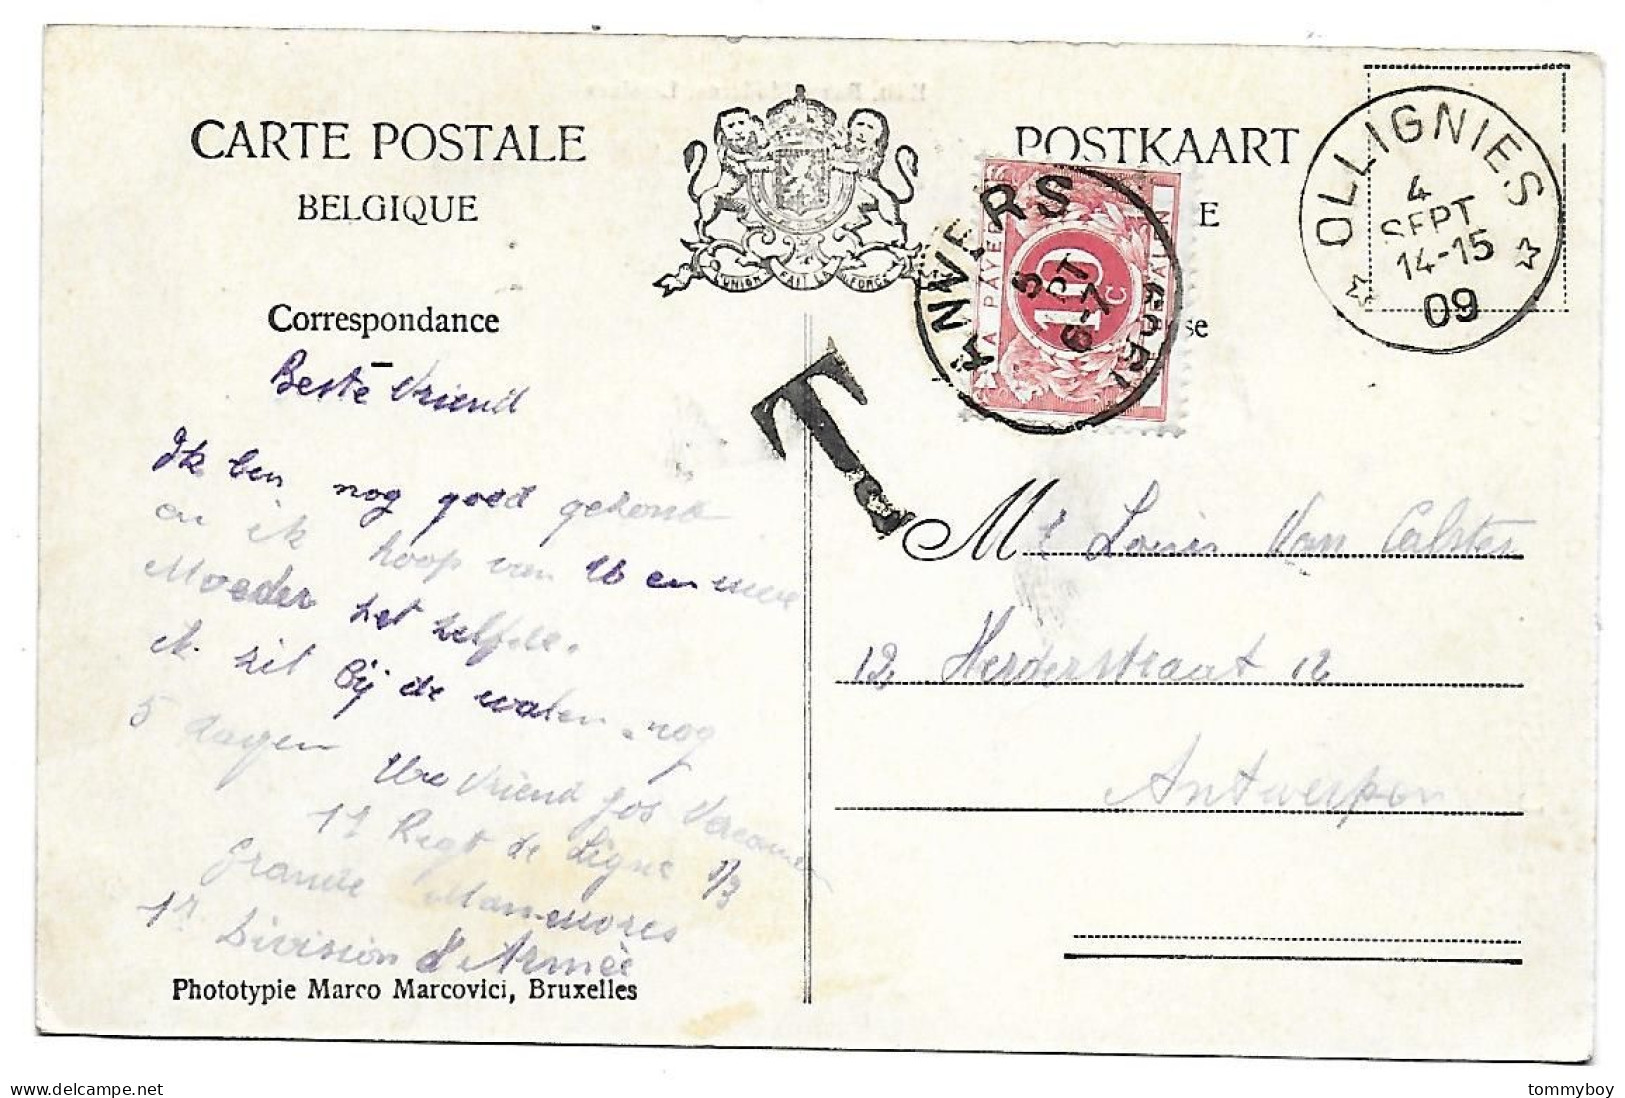 CARTE POSTALE
BELGIQUE
POSTKAART
E
L'UNION FAIT LA FORCE
Correspondance
se
OLLIGNIES
4
SEPT
14-15
09
ANVERS
5
PT
6-7
A PAYER
10 c
TE BETALEN
T
Beste Vriend
Ik ben nog goed gezond
en ik hoop van U en uwe
Moeder het zelfde.
ik zit bij de walen nog
5 dagen
Uw Vriend Jos
11 Regt de Ligne 1/3
Grande Manoeuvres
1r Division d'Armée
Phototypie Marco Marcovici, Bruxelles
Mr Louis Van Calster
12 Herderstraat 12
Antwerpen
tommyboy